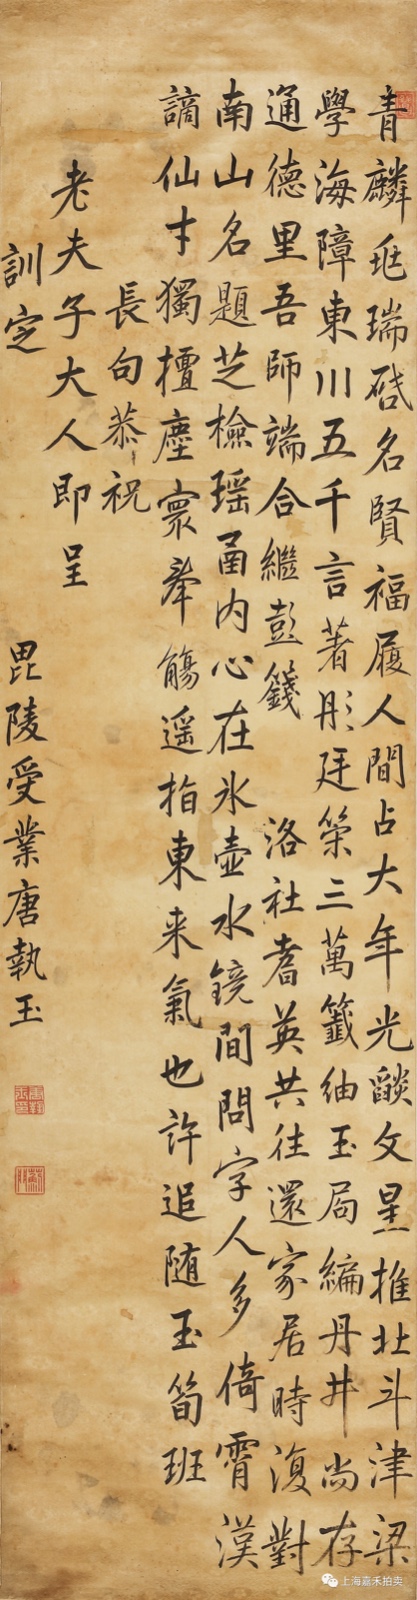 青麟毓瑞啟名賢福履人間占大年光燄文星推北斗津梁
學海障東川五千言著彤廷策三萬籤紬玉局編丹井尚存
通德里吾師端合繼彭籛　洛社耆英共往還家居時復對
南山名題芝檢瑤函內心在氷壺水鏡間問字人多倚霄漢
謫仙才獨擅塵寰舉觴遥指東来氣也許追随玉筍班
長句恭祝
老夫子大人即呈
訓定
毘陵受業唐執玉
上海嘉禾拍卖